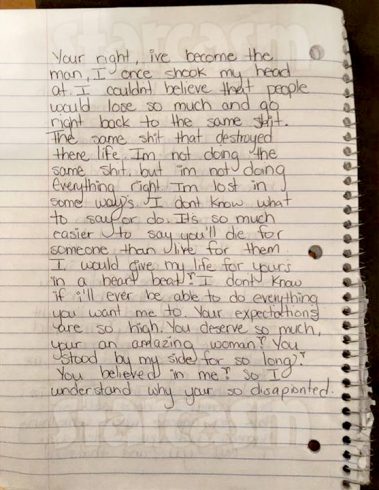 starcasm
Your right, ive become the
man, I once shook my head
at. I couldnt believe that people
would lose so much and go
right back to the same shit.
The same shit that destroyed
there life. Im not doing the
same shit, but im not doing
everything right. Im lost in
some ways. I dont know what
to say or do. Its so much
easier to say you'll die for
someone than live for them.
I would give my life for yours
in a heart beat! I dont know
if i'll ever be able to do everything
you want me to. Your expectations
are so high. You deserve so much,
your an amazing woman! You
stood by my side for so long!
You believed in me! So I
understand why your so disapionted.
starcasm